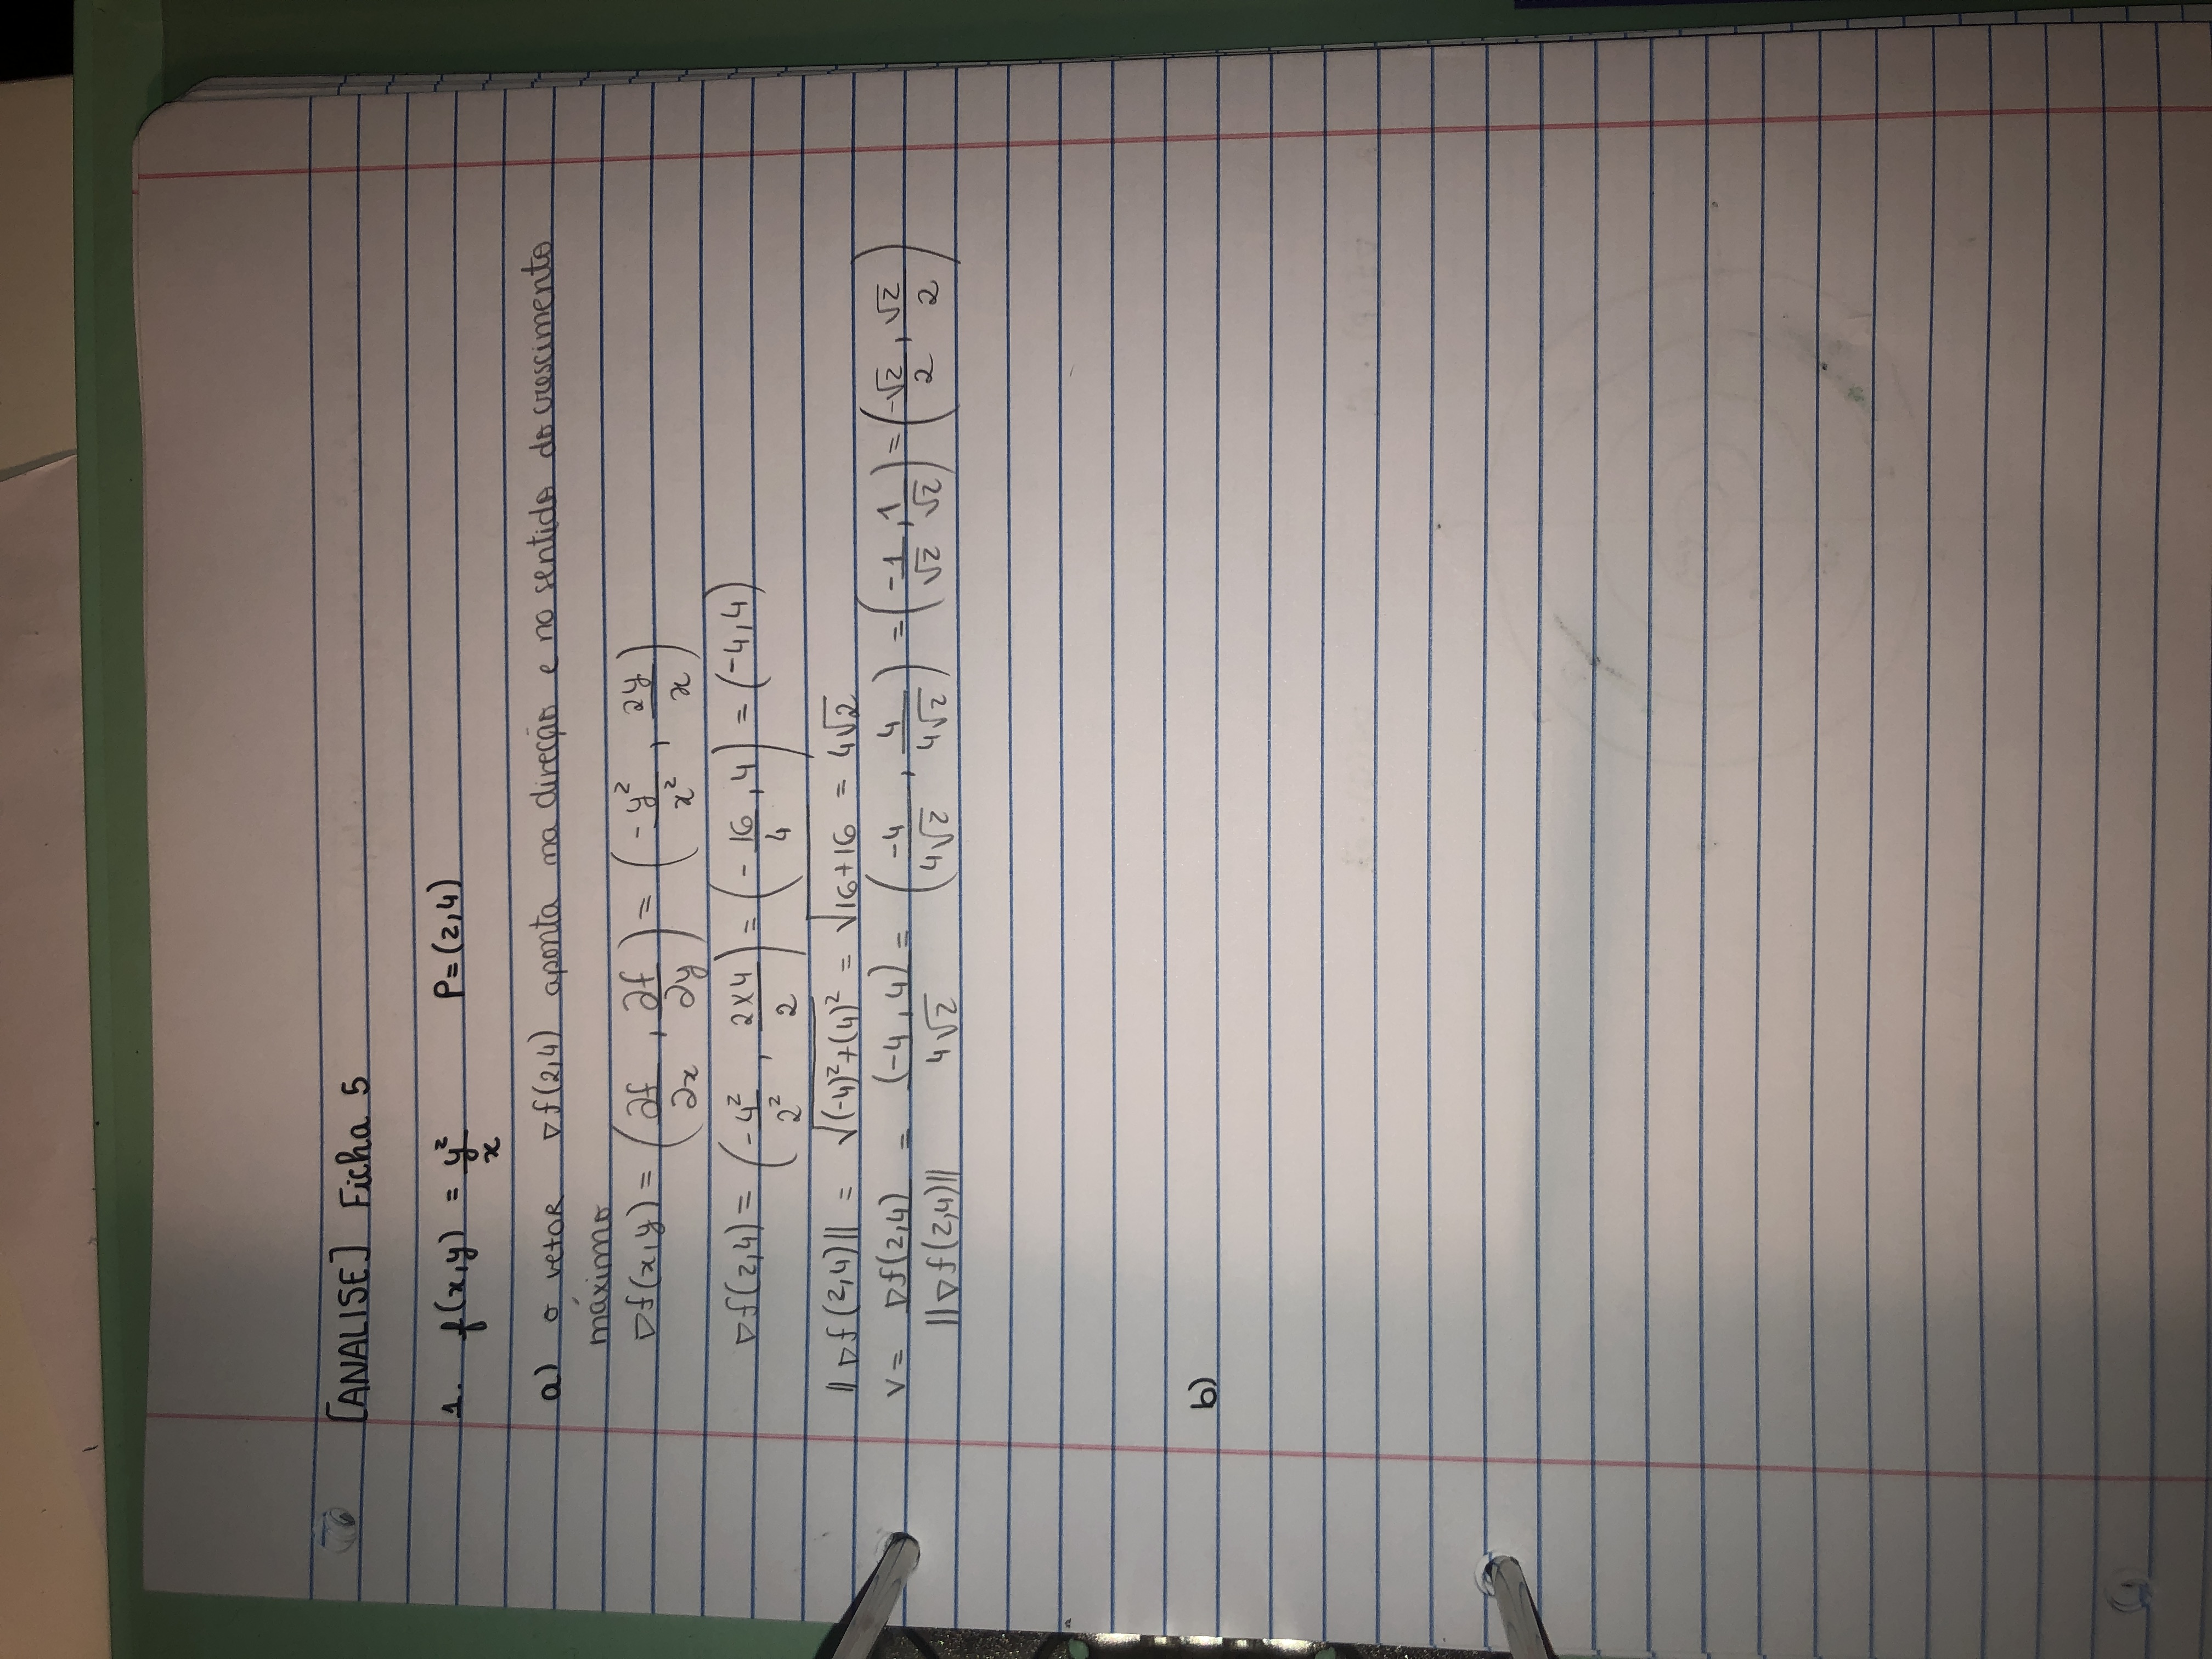 [ANALISE] Ficha 5
1. f(x,y) = y²/x P=(2,4)
a) o vetor ∇f(2,4) aponta na direção e no sentido do crescimento
máximo
∇f(x,y) = (∂f/∂x , ∂f/∂y) = (-y²/x² , 2y/x)
∇f(2,4) = (-4²/2² , 2×4/2) = (-16/4 , 4) = (-4,4)
||∇f(2,4)|| = √((-4)²+(4)²) = √(16+16) = 4√2
v = ∇f(2,4)/||∇f(2,4)|| = (-4,4)/4√2 = (-4/4√2 , 4/4√2) = (-1/√2 , 1/√2) = (-√2/2 , √2/2)
b)